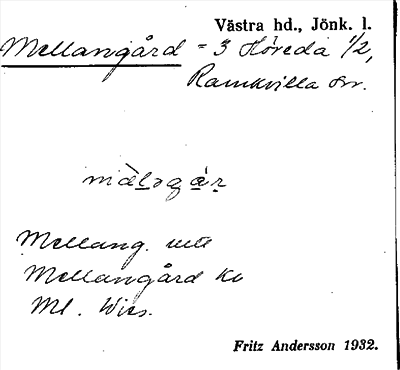 Västra hd., Jönk. l.
Mellangård = 3 Höreda 1/2,
Ramkvilla sn.
Mellang.
Mellangård
Ml. Wies.
Fritz Andersson 1932.